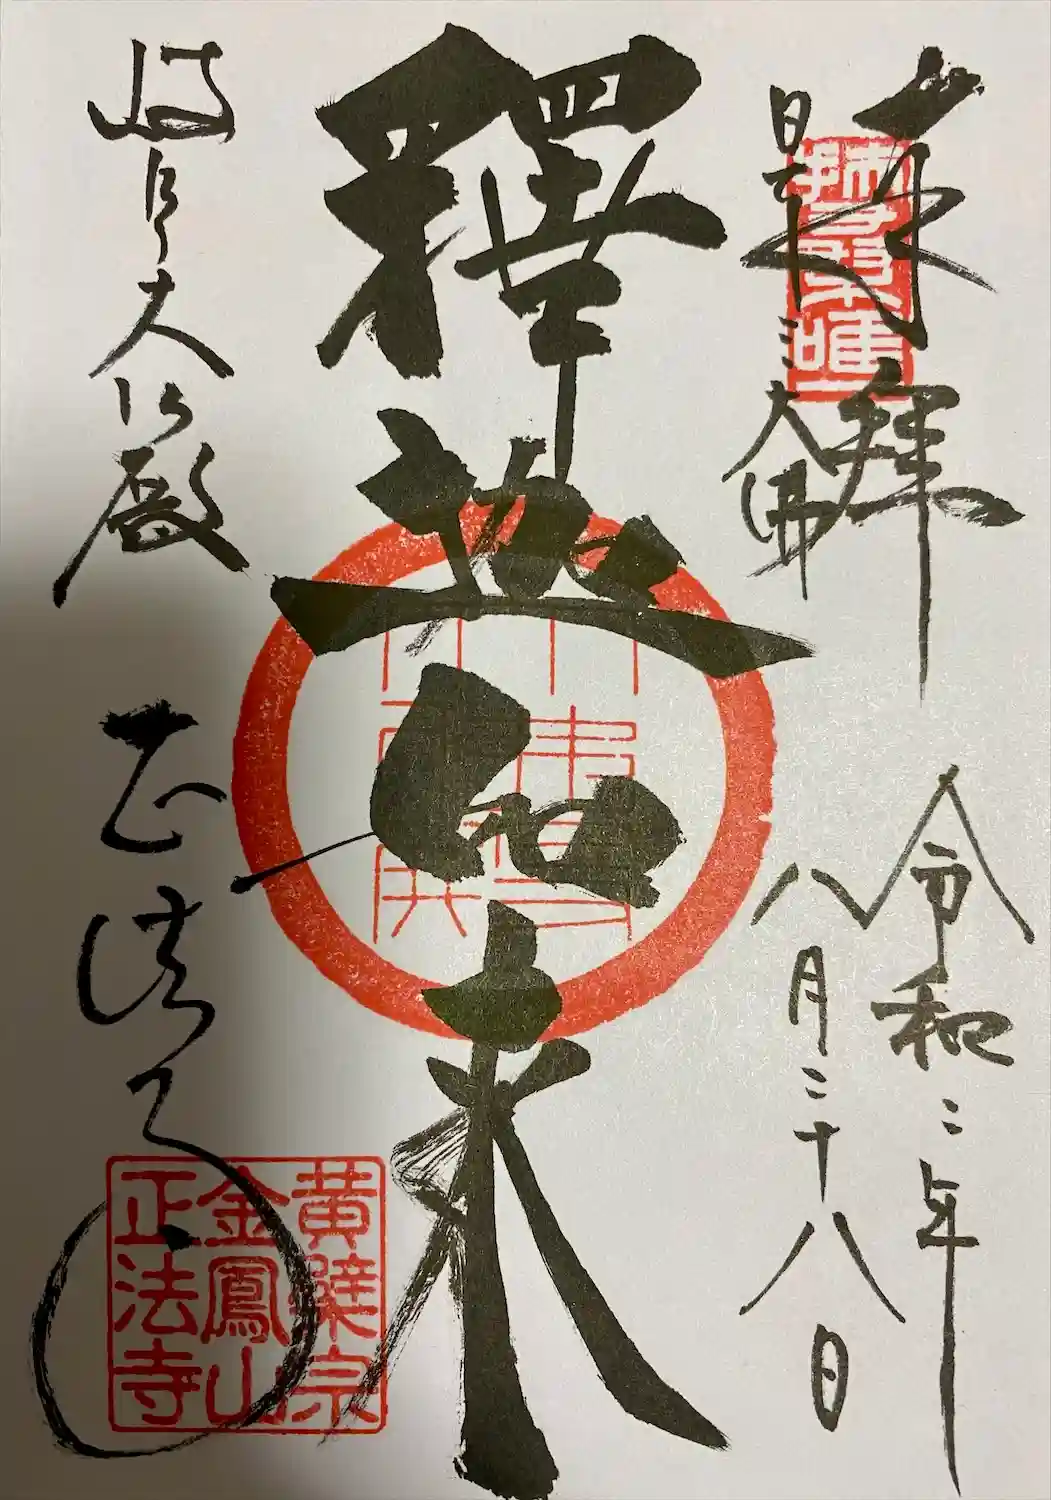 奉拜
日本三大佛
令和二年
八月二十八日
釋迦如来
岐阜大佛殿
正法寺
黄檗宗
金鳳山
正法寺